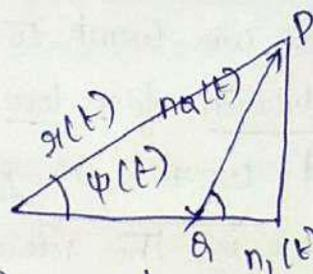 P
r(t)
nQ(t)
ψ(t)
Q
nI(t)